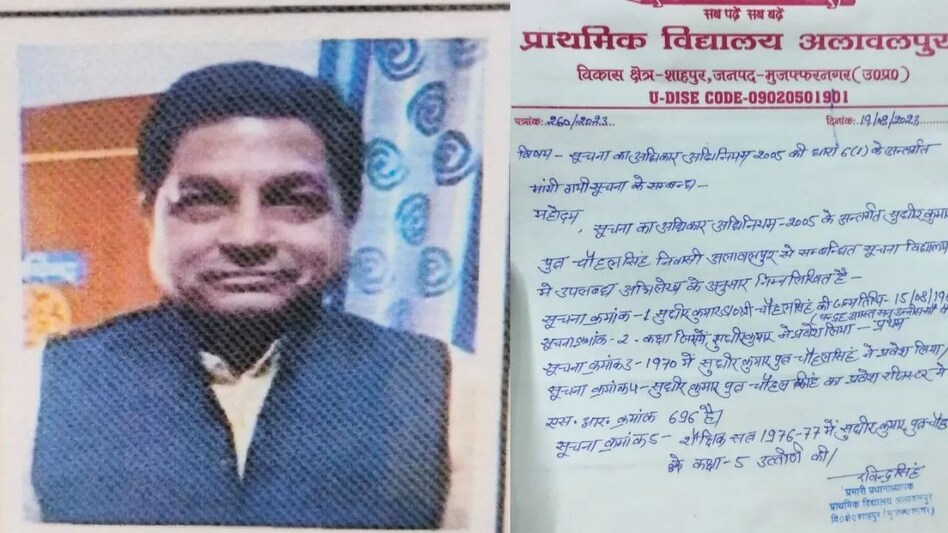 सब पढ़ें सब बढ़ें
प्राथमिक विद्यालय अलावलपुर
विकास क्षेत्र-शाहपुर, जनपद-मुजफ्फरनगर (उ०प्र०)
U-DISE CODE-09020501901
पत्रांक: 260/2023 दिनांक: 19/08/2023
विषय - सूचना का अधिकार अधिनियम-2005 की धारा 6(1) के अन्तर्गत
मांगी गयी सूचना के सम्बन्ध -
महोदय,
सूचना का अधिकार अधिनियम-2005 के अन्तर्गत सुधीर कुमार
पुत्र चौहल सिंह निवासी अलावलपुर से सम्बन्धित सूचना विद्यालय
में उपलब्ध अभिलेख के अनुसार निम्नलिखित है -
सूचना क्रमांक-1 सुधीर कुमार S/O श्री चौहल सिंह की जन्मतिथि- 15/08/19
सूचना क्रमांक-2 - कक्षा जिसमें सुधीर कुमार ने प्रवेश लिया - प्रथम
सूचना क्रमांक 3 - 1970 में सुधीर कुमार पुत्र चौहल सिंह ने प्रवेश लिया/
सूचना क्रमांक 4 - सुधीर कुमार पुत्र चौहल सिंह का प्रवेश रजिस्टर में
एस. आर. क्रमांक 696 है/
सूचना क्रमांक 5 - शैक्षिक सत्र 1976-77 में सुधीर कुमार पुत्र चौह
के कक्षा-5 उत्तीर्ण की/
रविन्द्र सिंह
प्रभारी प्रधानाध्यापक
प्राथमिक विद्यालय अलावलपुर
वि०क्षे० शाहपुर (मुजफ्फरनगर)